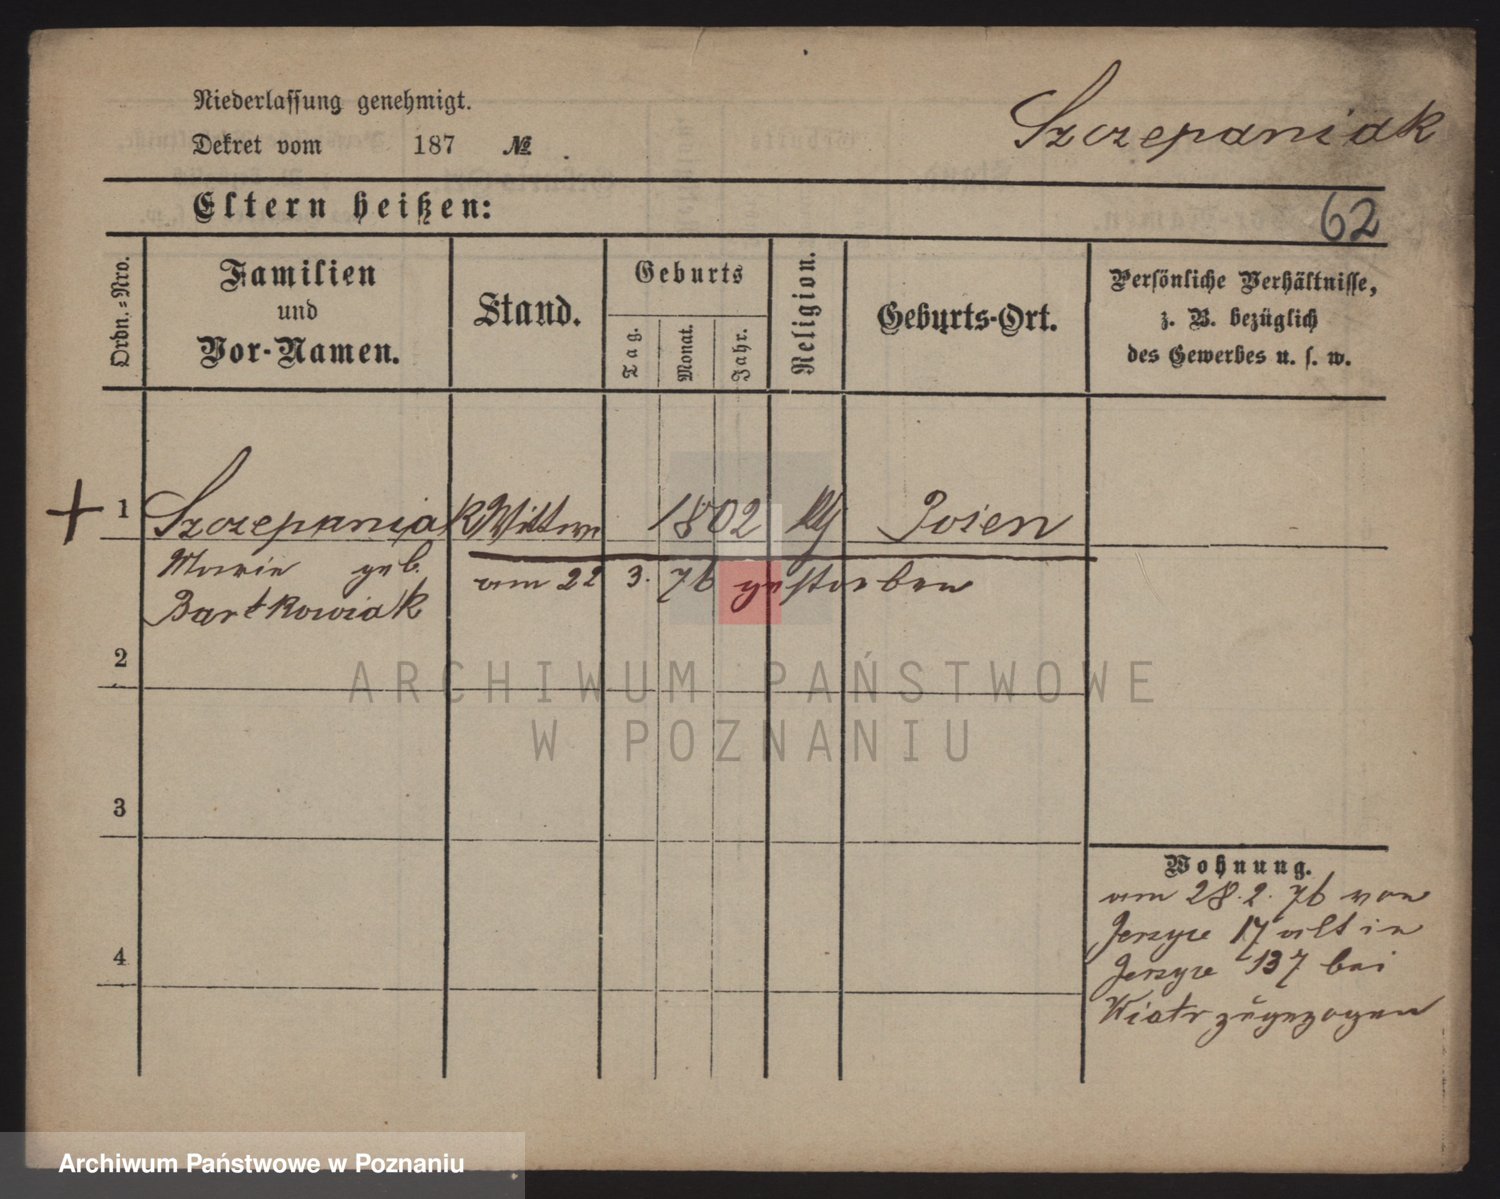 Niederlassung genehmigt.
Szczepaniak
Dekret vom 187 №
Eltern heißen:
62
Ordn.-Nro.
Familien
und
Vor-Namen.
Stand.
Geburts
Tag.
Monat.
Jahr.
Religion.
Geburts-Ort.
Persönliche Verhältnisse,
z. B. bezüglich
des Gewerbes u. s. w.
1 Szczepaniak Wittwe 1802 Posen
Marie geb. am 22 3. 76 gestorben
Bartkowiak
2
ARCHIWUM PAŃSTWOWE
W POZNANIU
3
Wohnung.
am 28. 2. 76 von
Jerzyce 17 alt in
4
Jerzyce 137 bei
Wiatr zugezogen
Archiwum Państwowe w Poznaniu